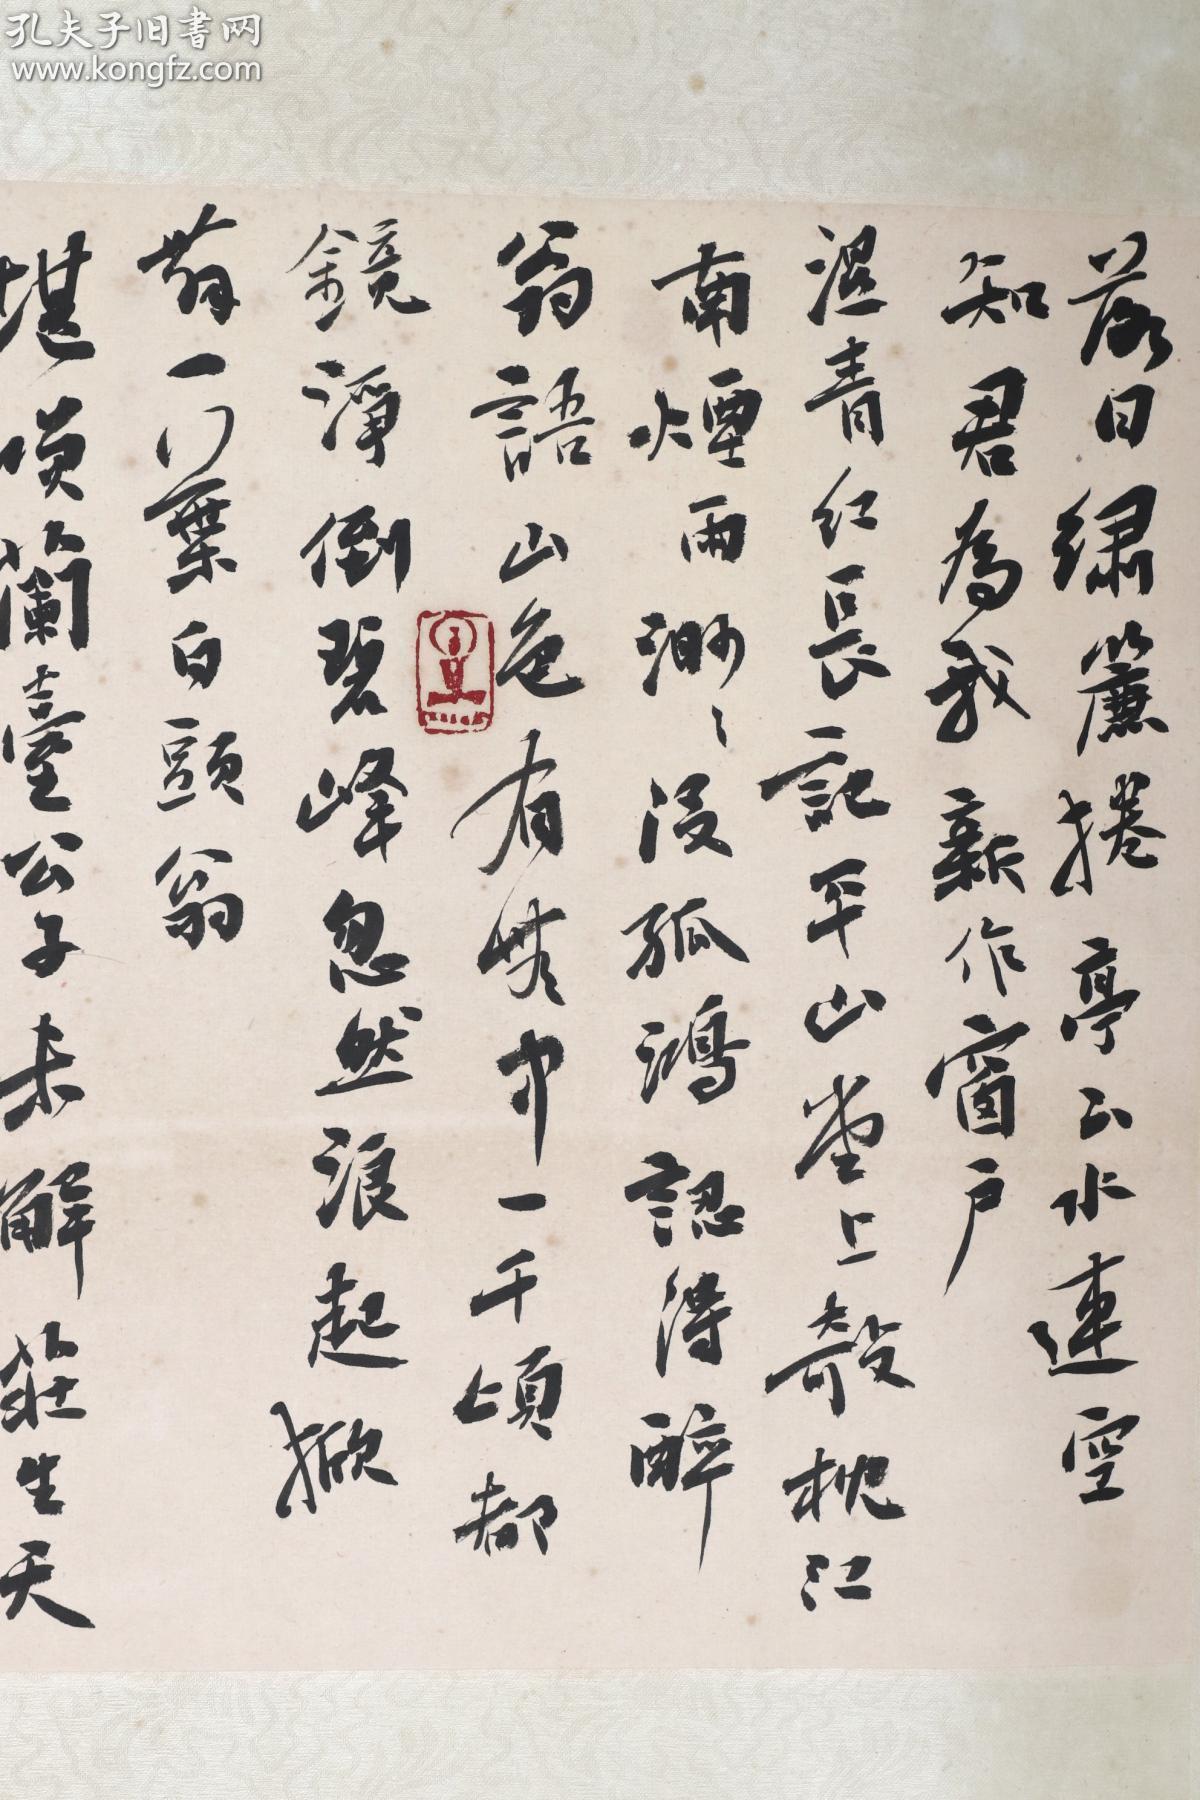 孔夫子旧書网
www.kongfz.com
落日繡簾捲亭下水連空
知君為我新作窗戶
濕青紅長記平山堂上欹枕江
南煙雨渺渺沒孤鴻認得醉
翁語山色有無中一千頃都
鏡淨倒碧峰忽然浪起掀
舞一葉白頭翁
堪嘆蘭臺公子未解莊生天